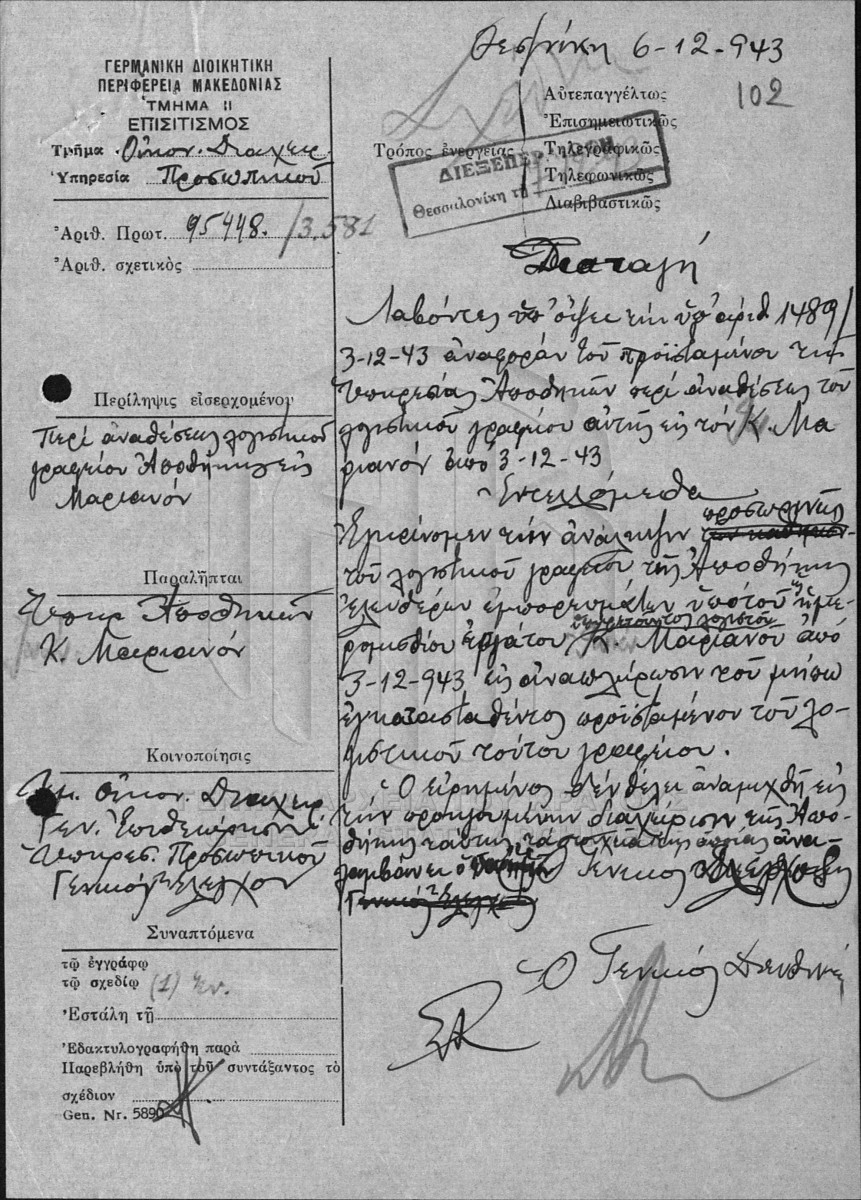 Θεσ/νίκη 6-12-943
102
ΓΕΡΜΑΝΙΚΗ ΔΙΟΙΚΗΤΙΚΗ
ΠΕΡΙΦΕΡΕΙΑ ΜΑΚΕΔΟΝΙΑΣ
ΤΜΗΜΑ ΙΙ
ΕΠΙΣΙΤΙΣΜΟΣ
Τμῆμα Οἰκον. Διαχειρ.
Ὑπηρεσία Προσωπικοῦ
Ἀριθ. Πρωτ. 95448. /3.581
Ἀριθ. σχετικὸς
Τρόπος ἐνεργείας
Αὐτεπαγγέλτως
Ἐπισημειωτικῶς
Τηλεγραφικῶς
Τηλεφωνικῶς
Διαβιβαστικῶς
ΔΙΕΞΕΠΕΡ
Θεσσαλονίκη τῇ
Διαταγή
Λαβόντες ὑπ' ὄψει τὴν ὑπ' ἀριθ. 1489/
3-12-43 ἀναφορὰν τοῦ προϊσταμένου τῆς
Ὑπηρεσίας Ἀποθηκῶν περὶ ἀναθέσεως τοῦ
λογιστικοῦ γραφείου αὐτῆς εἰς τὸν Κ. Μα
ριανὸν ἀπὸ 3-12-43
Ἐντελλόμεθα
Ἐγκρίνομεν τὴν ἀνάληψιν προσωρινῶς
τοῦ λογιστικοῦ γραφείου τῆς Ἀποθήκης
Ἐλευθέρων ἐμπορευμάτων ὑπὸ τοῦ ἡμε
ρομισθίου ἐργάτου Κ. Μαριανοῦ ἀπὸ
3-12-943 εἰς ἀναπλήρωσιν τοῦ μήπω
ἐγκατασταθέντος προϊσταμένου τοῦ λο-
γιστικοῦ τούτου γραφείου.
Ὁ εἰρημένος δὲν θέλει ἀναμιχθῆ εἰς
τὴν προηγουμένην διαχείρισιν τῆς Ἀπο-
θήκης ταύτης, τὰ στοιχεῖα τῆς ὁποίας ἀνα-
λαμβάνει ὁ Γενικὸς
Γενικὸς Ἔλεγχος
Ὁ Γενικὸς Διευθυντὴς
Περίληψις εἰσερχομένου
Περὶ ἀναθέσεως λογιστικοῦ
γραφείου Ἀποθήκης εἰς
Μαριανόν
Παραλῆπται
Ὑπηρ. Ἀποθηκῶν
Κ. Μαριανόν
Κοινοποίησις
Τμ. Οἰκον. Διαχειρ.
Γεν. Ἐπιθεώρησιν
Ὑπηρεσ. Προσωπικοῦ
Γενικὸν Ἔλεγχον
Συναπτόμενα
τῷ ἐγγράφῳ
τῷ σχεδίῳ (1) ἕν.
Ἐστάλη τῇ
Ἐδακτυλογραφήθη παρὰ
Παρεβλήθη ὑπὸ τοῦ συντάξαντος τὸ
σχέδιον
Gen. Nr. 5890